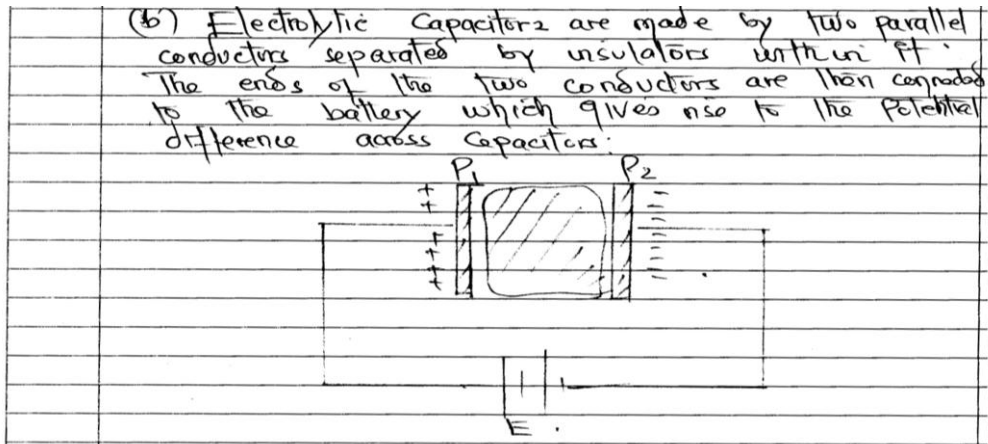 (b) Electrolytic Capacitors are made by two parallel
conductors separated by insulators within it.
The ends of the two conductors are then connected
to the battery which gives rise to the Potential
difference across Capacitors:
P1 P2
+ + + + + + − − − − − − −
E.